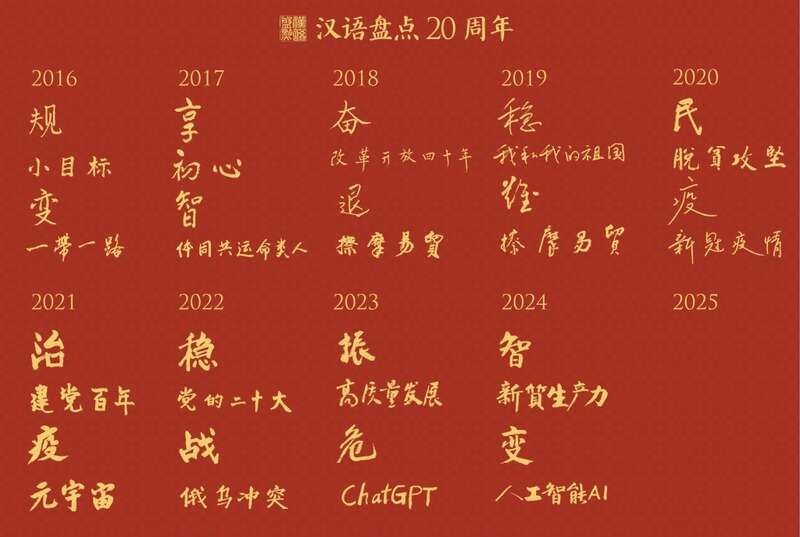 汉语盘点 20 周年
2016 2017 2018 2019 2020
规 享 奋 稳 民
小目标 初心 改革开放四十年 我和我的祖国 脱貧攻坚
变 智 退 難 疫
一帶一路 体同共运命类人 擦摩易貿 擦摩易貿 新冠疫情
2021 2022 2023 2024 2025
治 稳 振 智
建党百年 党的二十大 高质量发展 新質生产力
疫 战 危 变
元宇宙 俄乌冲突 ChatGPT 人工智能AI